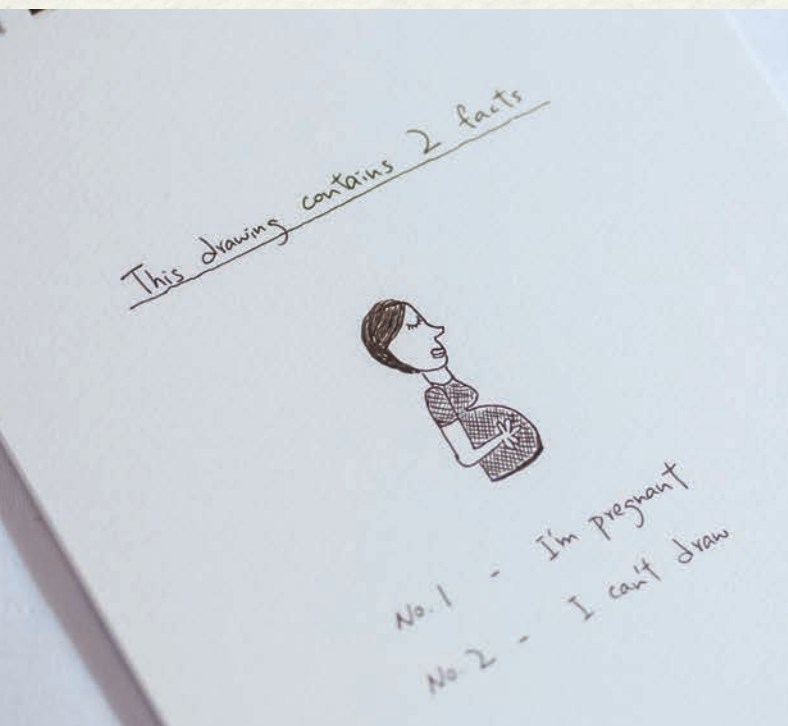 This drawing contains 2 facts
No. 1 - I'm pregnant
No. 2 - I can't draw